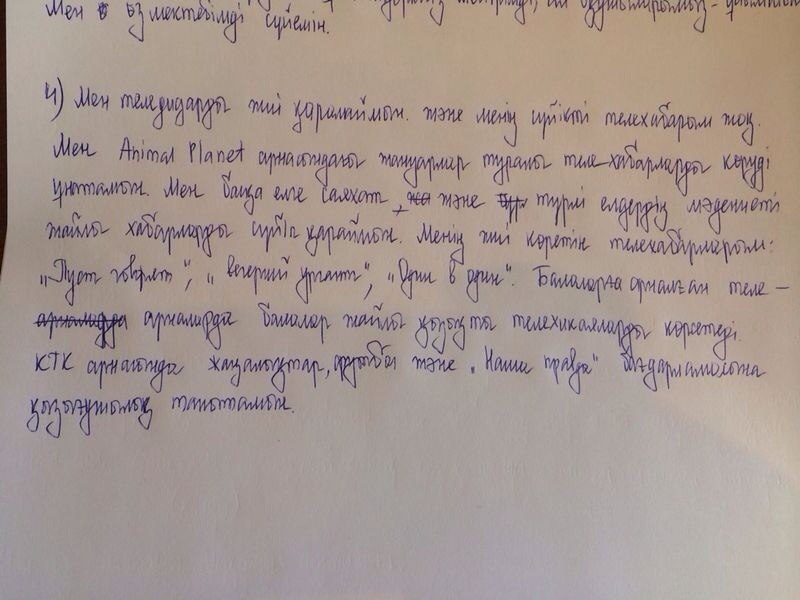 Мен өз мектебімді сүйемін.
4) Мен теледидарды жиі қарамаймын. және менің сүйікті телехабарым жоқ.
Мен Animal Planet арнасындағы жануарлар туралы теле-хабарларды көруді
ұнатамын. Мен басқа елге саяхат, және түрлі елдердің мәдениеті
жайлы хабарларды сүйіп қараймын. Менің жиі көретін телехабарларым:
„Пуст говорят", „вечерний ургант", „Один в один". Балаларға арналған теле-
арналарда арналарда балалар жайлы қызықты телехикаяларды көрсетеді.
КТК арнасында жаңалықтар, футбол және „Наша правда" бағдарламасына
қызығушылық танытамын.